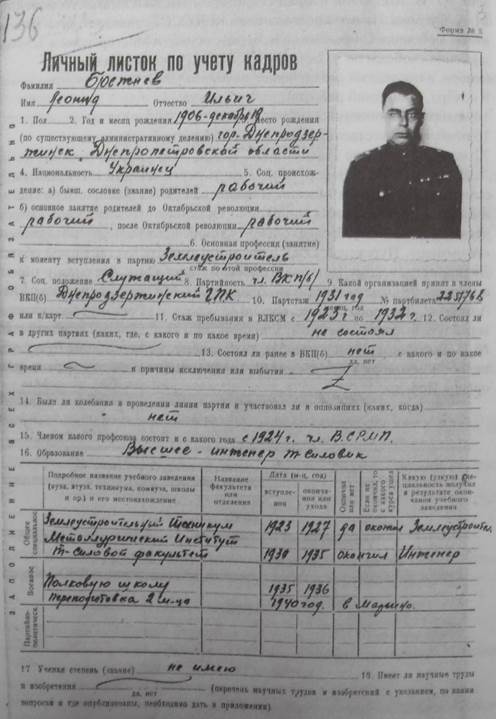 136
Форма № 2
Личный листок по учету кадров
Фамилия Брежнев
Имя Леонид Отчество Ильич
1. Пол 2. Год и месяц рождения 1906-декабрь 19 3. Место рождения
(по существующему административному делению) гор. Днепродзер-
жинск, Днепропетровской области
4. Национальность Украинец 5. Соц. происхож-
дение: а) бывш. сословие (звание) родителей рабочий
б) основное занятие родителей до Октябрьской революции
рабочий, после Октябрьской революции рабочий
6. Основная профессия (занятие)
к моменту вступления в партию Землеустроитель
стаж по этой профессии
7. Соц. положение Служащий 8. Партийность чл. ВКП(б) 9. Какой организацией принят в члены
ВКП(б) Днепродзержинский ГПК 10. Партстаж 1931 год № партбилета
или к/карт. 11. Стаж пребывания в ВЛКСМ с 1923 г по 1932 г. 12. Состоял ли
в других партиях (каких, где, с какого и по какое время) не состоял
13. Состоял ли ранее в ВКП(б) нет, с какого и по какое
да, нет
время и причины исключения или выбытия
14. Были ли колебания в проведении линии партии и участвовал ли в оппозициях (каких, когда)
нет
15. Членом какого профсоюза состоит и с какого года с 1924 г. чл. В.СРМП.
16. Образование Высшее - инженер т-силовик
Подробное название учебного заведения (вуза, втуза, техникума, комвуза, школы и пр.) и его местонахождение
Название факультета или отделения
Дата (м-ц, год)
вступления
окончания или ухода
Окончил или нет
Если не окончил, то с какого курса ушел
Какую (узкую) специальность получил в результате окончания учебного заведения
Общее специальное
Землеустроительный Техникум 1923 1927 да окончил Землеустроитель
Металлургический Институт
т-силовой факультет 1930 1935 окончил Инженер
Военное
Полковую школу 1935 1936
переподготовка 2 м-ца 1940 год.
Партийно-политическое
17. Ученая степень (звание) не имею 18. Имеет ли научные труды
и изобретения
да, нет
(перечень научных трудов и изобретений с указанием, по каким
вопросам и где опубликованы, необходимо дать в приложении)
ЗАПОЛНЕНИЕ ВСЕХ ГРАФ ОБЯЗАТЕЛЬНО